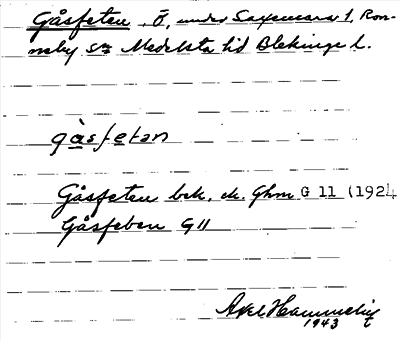 Gåsfeten, Ö, under Saxemara 1, Ron-
neby sn Medelsta hd Blekinge l.
gåsfetan
Gåsfeten bek. ek. Ghm G 11 (1924
Gåsfeten G 11
Axel Hammelin
1943